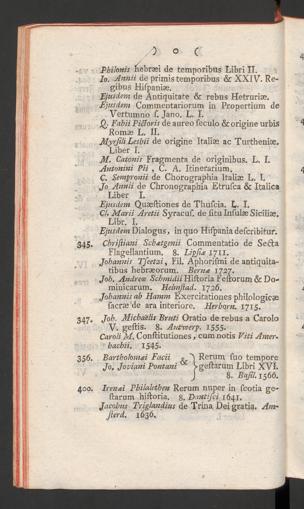 ) o (
Philonis hebræi de temporibus Libri II.
Io. Annii de primis temporibus & XXIV. Re-
gibus Hispaniæ.
Ejusdem de Antiquitate & rebus Hetruriæ.
Ejusdem Commentariorum in Propertium de
Vertumno f. Jano. L. I.
Q. Fabii Pictoris de aureo seculo & origine urbis
Romæ L. II.
Myrsili Lesbii de origine Italiæ ac Turtheniæ.
Liber I.
M. Catonis Fragmenta de originibus. L. I.
Antonini Pii, C. A. Itinerarium.
C. Sempronii de Chorographia Italiæ L. I.
Jo Annii de Chronographia Etrusca & Italica
Liber I.
Ejusdem Quæstiones de Thuscia. L. I.
Cl. Marii Aretii Syracus. de situ Insulæ Siciliæ.
Libr. I.
Ejusdem Dialogus, in quo Hispania describitur.
345. Christiani Schœtgenii Commentatio de Secta
Flagellantium. 8. Lipsiæ 1711.
Johannis Tzetzi, Fil. Aphorismi de antiquita-
tibus hebræorum. Bernæ 1727.
Joh. Andreæ Schmidii Historia Festorum & Do-
minicarum. Helmstad. 1726.
Johannis ab Hamm Exercitationes philologicæ
sacræ de ara interiore. Herborn. 1715.
347. Joh. Michaëlis Bruti Oratio de rebus a Carolo
V. gestis. 8. Antwerp. 1555.
Caroli M. Constitutiones, cum notis Viti Amer-
bachii. 1545.
356. Bartholomæi Facii & Rerum suo tempore
Jo. Joviani Pontani gestarum Libri XVI.
8. Basil. 1566.
400. Irenæi Philalethen Rerum nuper in scotia ge-
starum historia. 8. Dantisci 1641.
Jacobus Triglandius de Trina Dei gratia. Am-
sterd. 1636.